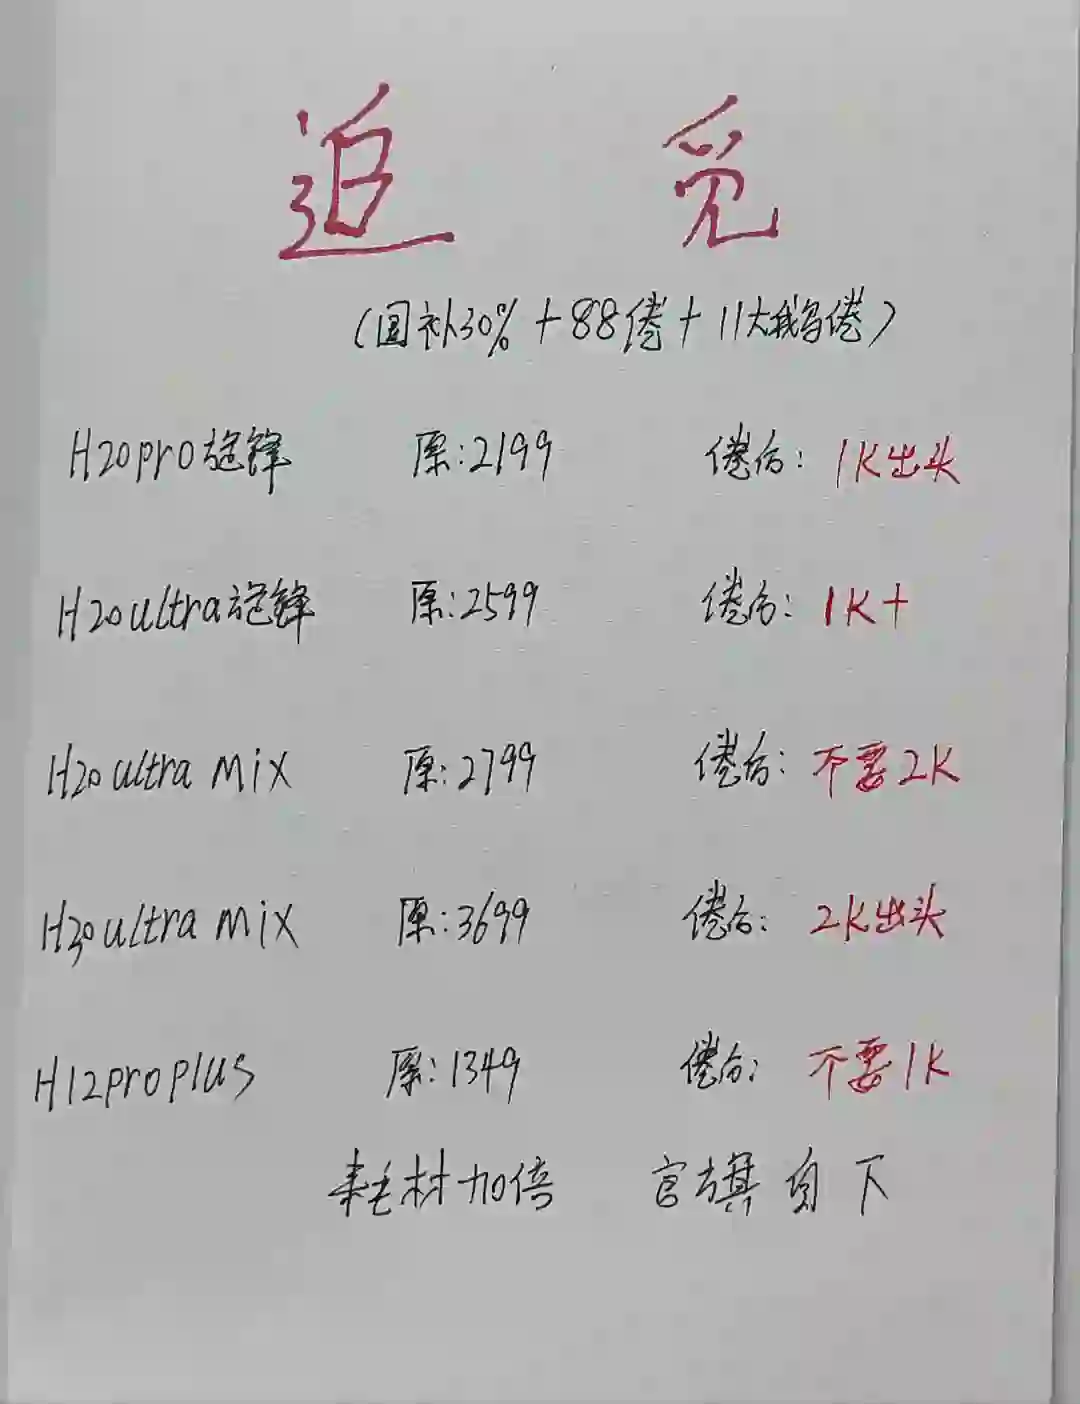 追 觅
(国补30%+88倦+11大鹅岛倦)
H20pro旋锋 原:2199 倦后:1K出头
H20ultra旋锋 原:2599 倦后:1K+
H20ultra mix 原:2799 倦后:不要2K
H30ultra mix 原:3699 倦后:2K出头
H12proplus 原:1349 倦后:不要1K
耗材加倍 官旗自下